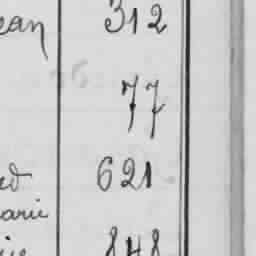 ean 312
77
ed 621
arie
848